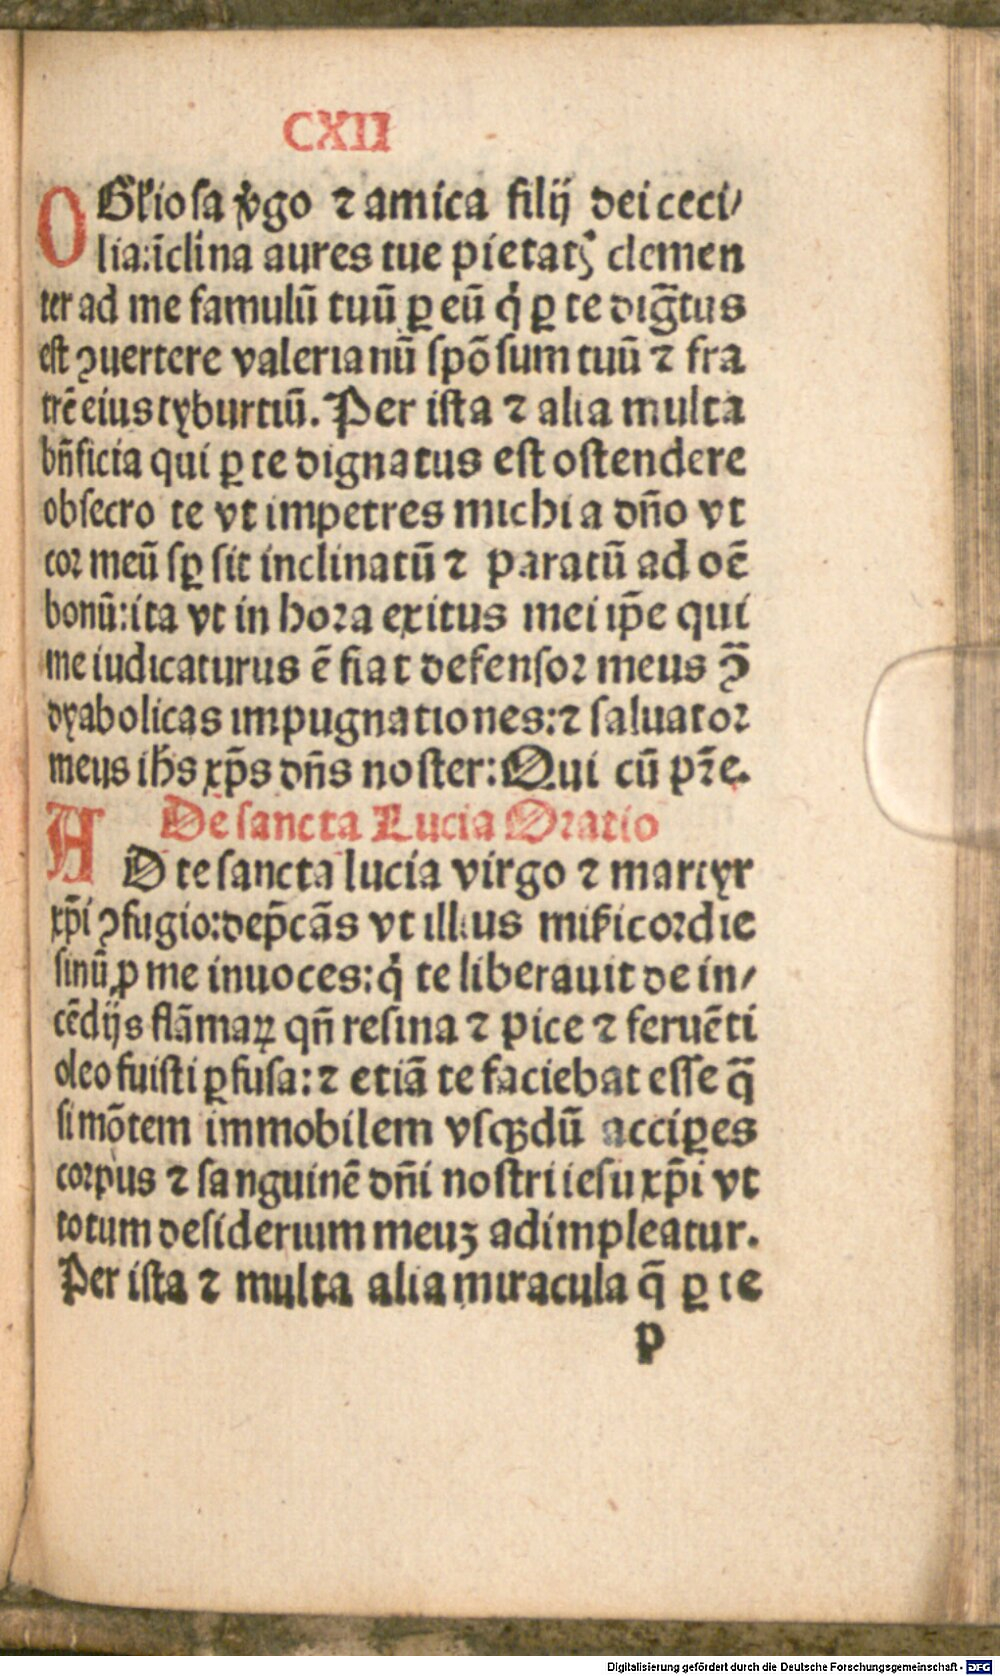 CXII
O Gl̄iosa v̓go ⁊ amica filij dei ceci/
lia:īclina aures tue pietatꝭ clemen
ter ad me famulū tuū ꝑ eū q̇ ꝑ te diḡtus
est ꝯuertere valerianū spōsum tuū ⁊ fra
trē eius tyburtiū. Per ista ⁊ alia multa
bn̄ficia qui ꝑ te dignatus est ostendere
obsecro te vt impetres michi a dn̄o vt
coꝛ meū sꝑ sit inclinatū ⁊ paratū ad oē
bonū:ita vt in hoꝛa exitus mei ip̄e qui
me iudicaturus ē fiat defensoꝛ meus ꝯ̄
dyabolicas impugnationes:⁊ saluatoꝛ
meus ih̄s xp̄s dn̄s noster:Qui cū pr̄e.
De sancta Lucia Oratio
AD te sancta lucia virgo ⁊ martyr
xp̄i ꝯfugio:dep̄cās vt illius mīicoꝛdie
sinū ꝓ me inuoces:q̇ te liberauit de in/
cēdijs flāmaꝝ qn̄ resina ⁊ pice ⁊ feruēti
oleo fuisti ꝑfusa:⁊ etiā te faciebat esse q̄
si mōtem immobilem vsqꝫdū acciꝑes
coꝛpus ⁊ sanguinē dn̄i nostri iesu xp̄i vt
totum desiderium meuꝫ adimpleatur.
Per ista ⁊ multa alia miracula q̄ ꝑ te
p
Digitalisierung gefördert durch die Deutsche Forschungsgemeinschaft - DFG